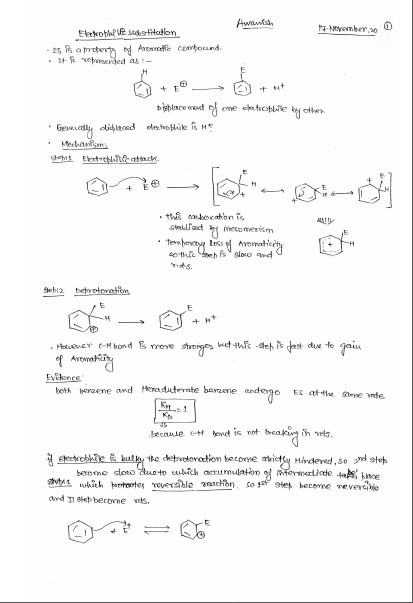 Awanish
17-November,20 ①
Electrophilic substitution
• ES is a property of Aromatic compound.
• It is represented as :-
H
E
+ E⊕ → + H⁺
Displacement of one electrophile by other.
• Generally displaced electrophile is H⁺
• Mechanism:
Step:1 Electrophilic attack.
+ E⊕ →
E
H
+
↔
E
H
+
↔
+
E
H
• this carbocation is
stabilised by Mesomerism
• Temporary loss of Aromaticity
so this step is slow and
rds.
E
H
+
Step:2 Deprotonation
E
H
⊕
→
E
+ H⁺
• However C-H bond is more stronger but this step is fast due to gain
of Aromaticity
Evidence
both benzene and Hexadeuterate benzene undergo ES at the same rate
KH/KD = 1
because C-H bond is not breaking in rds.
if electrophile is bulky the deprotonation become strictly Hindered, so 2nd step
become slow due to which accumulation of intermediate take place
which reversible reaction. so 1st step become reversible
and II step become rds.
+ E⁺ ⇌
E
⊕